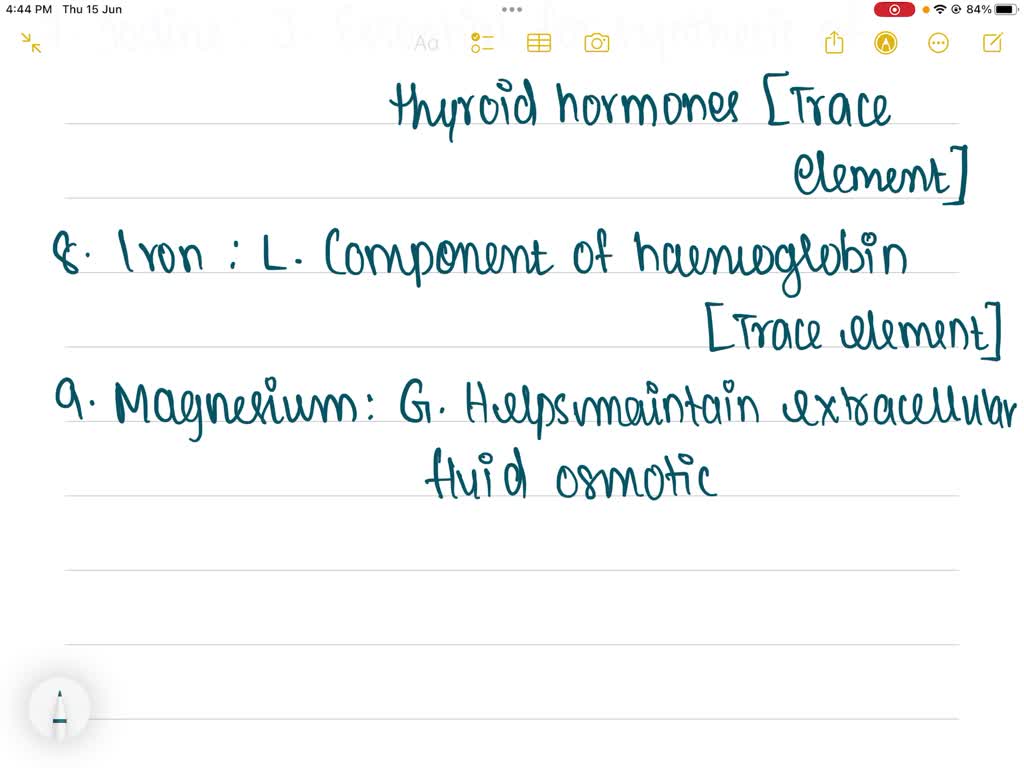 4:44 PM Thu 15 Jun
84%
Aa
thyroid hormones [Trace
element]
8. Iron : L. Component of haemoglobin
[Trace element]
9. Magnesium: G. Helps maintain extracellular
fluid osmotic